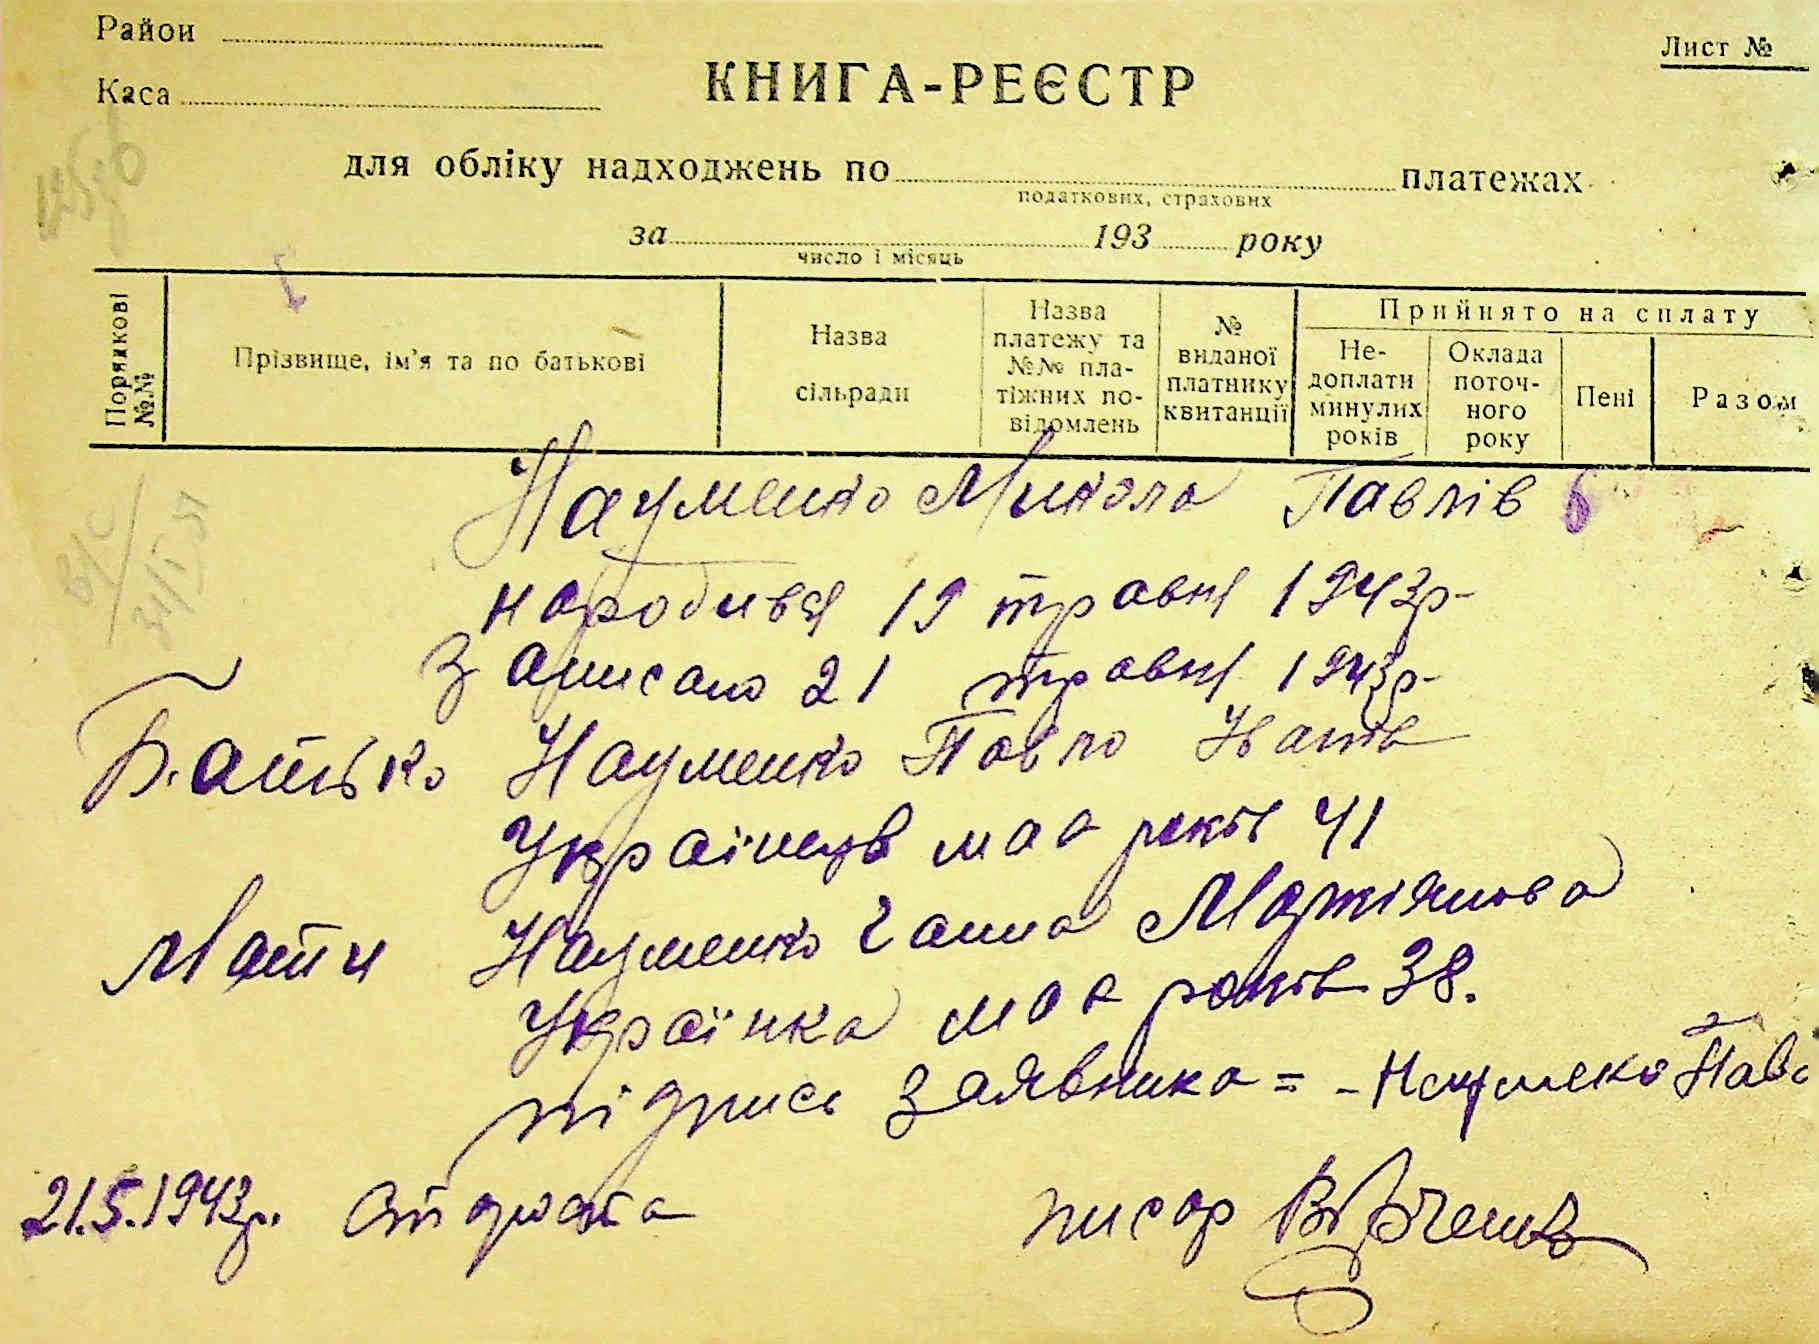 Район
Каса
Лист №
КНИГА-РЕЄСТР
для обліку надходжень по платежах
податкових, страхових
за 193 року
число і місяць
Порядкові №№
Прізвище, ім'я та по батькові
Назва сільради
Назва платежу та №№ платіжних повідомлень
№ виданої платнику квитанції
Прийнято на сплату
Недоплати минулих років
Оклада поточного року
Пені
Разом
Науменко Микола Павлів
народився 19 травня 1943р-
Записано 21 травня 1943р-
Батько Науменко Павло
Українців має років 41
Мати Науменко Ганна
Українка має років 38.
підпись заявника = - Наумеко Пав
21.5.1943р. Староста писар